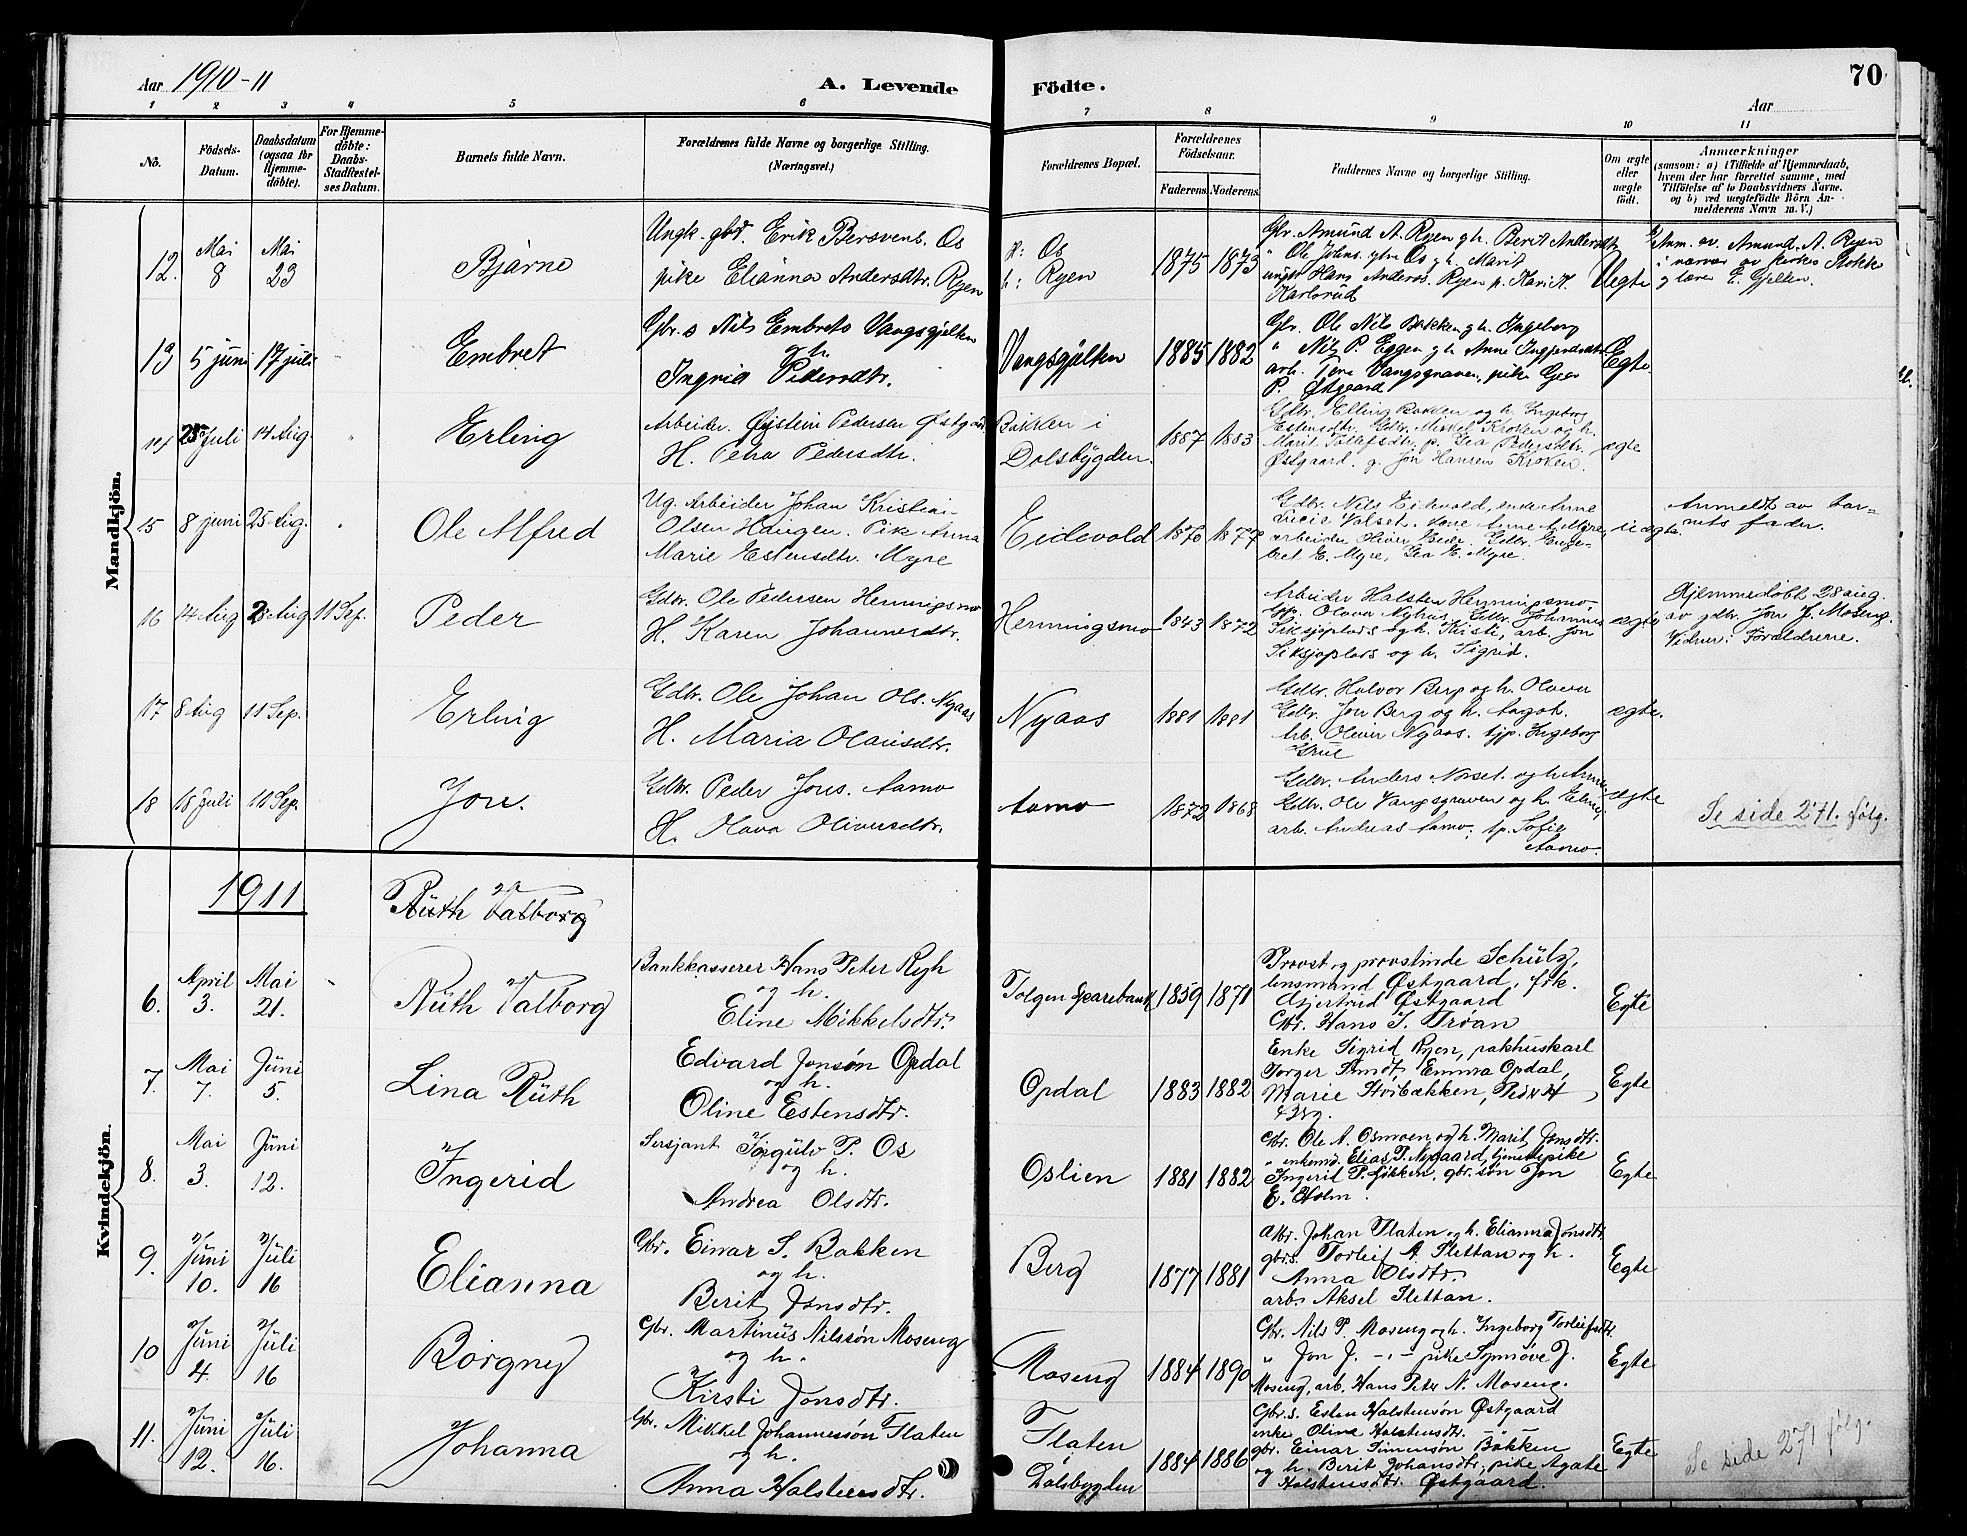 Aar 1910-11
A. Levende
Födte.
70
Aar
1 2 3 4 5 6 7 8 9 10 11
No.
Födsels-Datum.
Daabsdatum (ogsaa for Hjemme-döbte).
For Hjemme-döbte: Daabs-Stadfæstel-ses Datum.
Barnets fulde Navn.
Forældrenes fulde Navne og borgerlige Stilling. (Næringsvei.)
Forældrenes Bopæl.
Forældrenes Födselsaar.
Faderens. Moderens.
Faddernes Navne og borgerlige Stilling.
Om ægte eller uægte födt.
Anmærkninger
(saasom: a) i Tilfælde af Hjemmedaab,
hvem der har forrettet samme, med
Tilföielse af to Daabsvidners Navne.
og b) ved uægtefödte Börn An-
melderens Navn m. V.)
Mandkjön.
12. Mai 8 Mai 23 Bjarne
Ungk. gbr. Erik Bersvens. Os
pike Elianna Andersdtr. Ryen
f: Os
h: Ryen
1875 1873
Gbr. Amund A. Ryen g h. Berit Andersdtr
" Ole Johns. ybre Os g h. Marit
ungk Hans Anders. Ryen p. Kari K.
Karlsrud
Uegte
Anm. av Amund A. Ryen
i nærvær av kirkes. Stokke
g lærer E. Gjelten.
13 5 juni 17 juli Embret
Gbr. s Nils Embrets Vangsgjelten
og h.
Ingrid Pedersdtr.
Vangsgjelten 1885 1882
Gbr. Ole Nils Bakken g h. Ingeborg
" Nils P. Eggen g h Anne Ingebrigtsdtr
arb. Tore Vangsgraven, pike Gea
P. Østgaard
Egte
14 25 Juli 14 Aug. Erling
Arbeider. Øistein Pedersen Østgaard
H. Petra Pedersdtr.
Bakken i
Dalsbygden.
1887 1883
Gdbr. Elling Bakken og h. Ingeborg
Estensdtr. Gdbr. Mikkel Kroken og h.
Marit Tollefsdtr. p. Gea Pedersdtr.
Østgaard. g. Jon Hansen Kroken.
ægte
15 8 juni 25 Aug. Ole Alfred
Ug. Arbeider Johan Kristian
Olsen Haugen. Pike Anna
Marie Estensdtr. Myre
Eidevold 1870 1877
Gdbr. Nils Eidevold, enke Anne
Lucie Valset. Kone Anne A. Myre,
arbeider Oliver Bede. Gdbr. Enge-
bret E. Myre, Gea E. Myre.
uægte.
Anmeldt av bar-
nets fader.
16 14 Aug 28 Aug 11 Sep. Peder
Gdbr. Ole Pedersen Henningsmo
H. Karen Johannesdtr.
Henningsmo 1843 1872
Arbeider Halsten Henningsmo,
tjp. Olava Nyhus, Gdbr. Johannes
Siksjøplads og h. Kirsti, arb. Jon
Siksjøplads og h. Sigrid.
ægte
Hjemmedøbt 28 aug.
av gdbr. Jon J. Moseng.
Vidner: Forældrene.
17 8 Aug 11 Sep. Erling
Gdbr. Ole Johan Ols. Nyaas
H. Maria Olausdtr.
Nyaas 1881 1881
Gdbr. Halvor Berg og h. Olava
Gdbr. Jon Berg og h. Aagot.
Arb. Oliver Nyaas. tjp. Ingeborg
Grue
ægte.
18 18 Juli 10 Sep. Jon.
Gdbr. Peder Jons. Aamo
H. Olava Oliversdtr.
Aamo 1872 1868
Gdbr. Anders Norset og h. Anne
Gdbr. Ole Vangsgraven og h. Eline,
arb. Andreas Aamo. tp. Sofie
Aamo.
ægte
Se side 271. følg.
Kvindekjön.
1911 Ruth Valborg
6. April 3. Mai 21. Ruth Valborg
Bankkasserer Hans Peter Ryh
og h.
Eline Mikkelsdtr.
Tolgen Sparebank 1859 1871
Provst og provstinde Schulz,
lensmand Østgaard, frk.
Gjertrud Østgaard
Gbr. Hans J. Trøan
Egte
7. Mai 7. Juni 5. Lina Ruth
Edvard Jonsøn Opdal
og h.
Oline Estensdtr.
Opdal 1883 1882
Enke Sigrid Ryen, pakhuskarl
Torger Smidt, Emma Opdal,
Marie Støibækken, Peder H
Egte
8. Mai 3. Juni 12. Ingerid
Sersjant Ingulv P. Os
og h.
Andrea Olsdtr.
Oslien 1881 1882
Gbr. Ole A. Osmoen og h. Marit Jonsdtr.
" enkem. Elias P. Nygaard, tjenestepike
Ingerid P. Løkken, gbr. søn Jon
E. Holm.
Egte
9. Juni 10. Juli 16 Elianna
Gbr. Einar S. Bakken
og h.
Berit Jonsdtr.
Berg 1877 1881
Gbr. Johan Flaten og h. Elianna Jonsdtr.
gbr.s. Torleif A Slettan og h.
Anna Olsdtr.
arb. Aksel Slettan.
Egte
10 Juni 4. Juli 16 Borgny
Gbr. Martinus Nilssøn Moseng
og h.
Kirsti Jonsdtr.
Moseng 1884 1890
Gbr. Nils P. Moseng og h. Ingeborg Torleifsdtr.
" Jon J. -"- pike Synnøve J.
Moseng, arb. Hans Peter N. Moseng.
Egte
11. Juni 12. Juli 16. Johanna
Gbr. Mikkel Johannessøn Flaten
og h.
Anna Halstensdtr.
Flaten
Dalsbygden
1884 1886
Gbr.s. Esten Halstensøn Østgaard
enke Olina Halstensdtr. -"-
gbr. Einar Simensøn Bakken
og h. Berit Johansdtr, pike Agate
Halstensdtr. Østgaard.
Egte
Se side 271 følg.